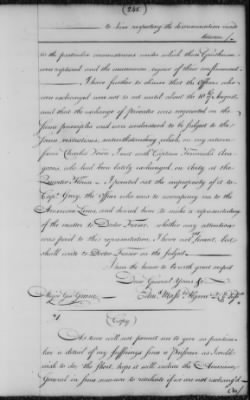 245
to laws respecting the discrimination made
between
in the particular circumstances under which these Gentlemen
were captured and the uncommon rigour of their confinement.
I have further to observe that the Officers who
were exchanged were not set until about the 10th of August,
and that the exchange of privates was negociated on the
same principles and were understood to be subject to the
same restrictions, notwithstanding which, on my return
from Charles Town I met with Captain Fernando
who had been lately exchanged on duty at the
Quarter House. I pointed out the impropriety of it to
Capt. Gray, the Officer who was to accompany me to the
American Lines and desired him to make a representation
of the matter to Doctor Fraser whether any attention
was paid to this representation I have not learnt, but
shall write to Doctor Fraser on the subject.
I have the honor to be with great respect
Dear General Yours &c
Major Genl Greene
(Copy)
As time will not permit me to give so particu-
lar a detail of my sufferings from a Prisoner as I would
wish to do, the short hope it will induce the American
General in some measure to retaliate if we are not exchang'd